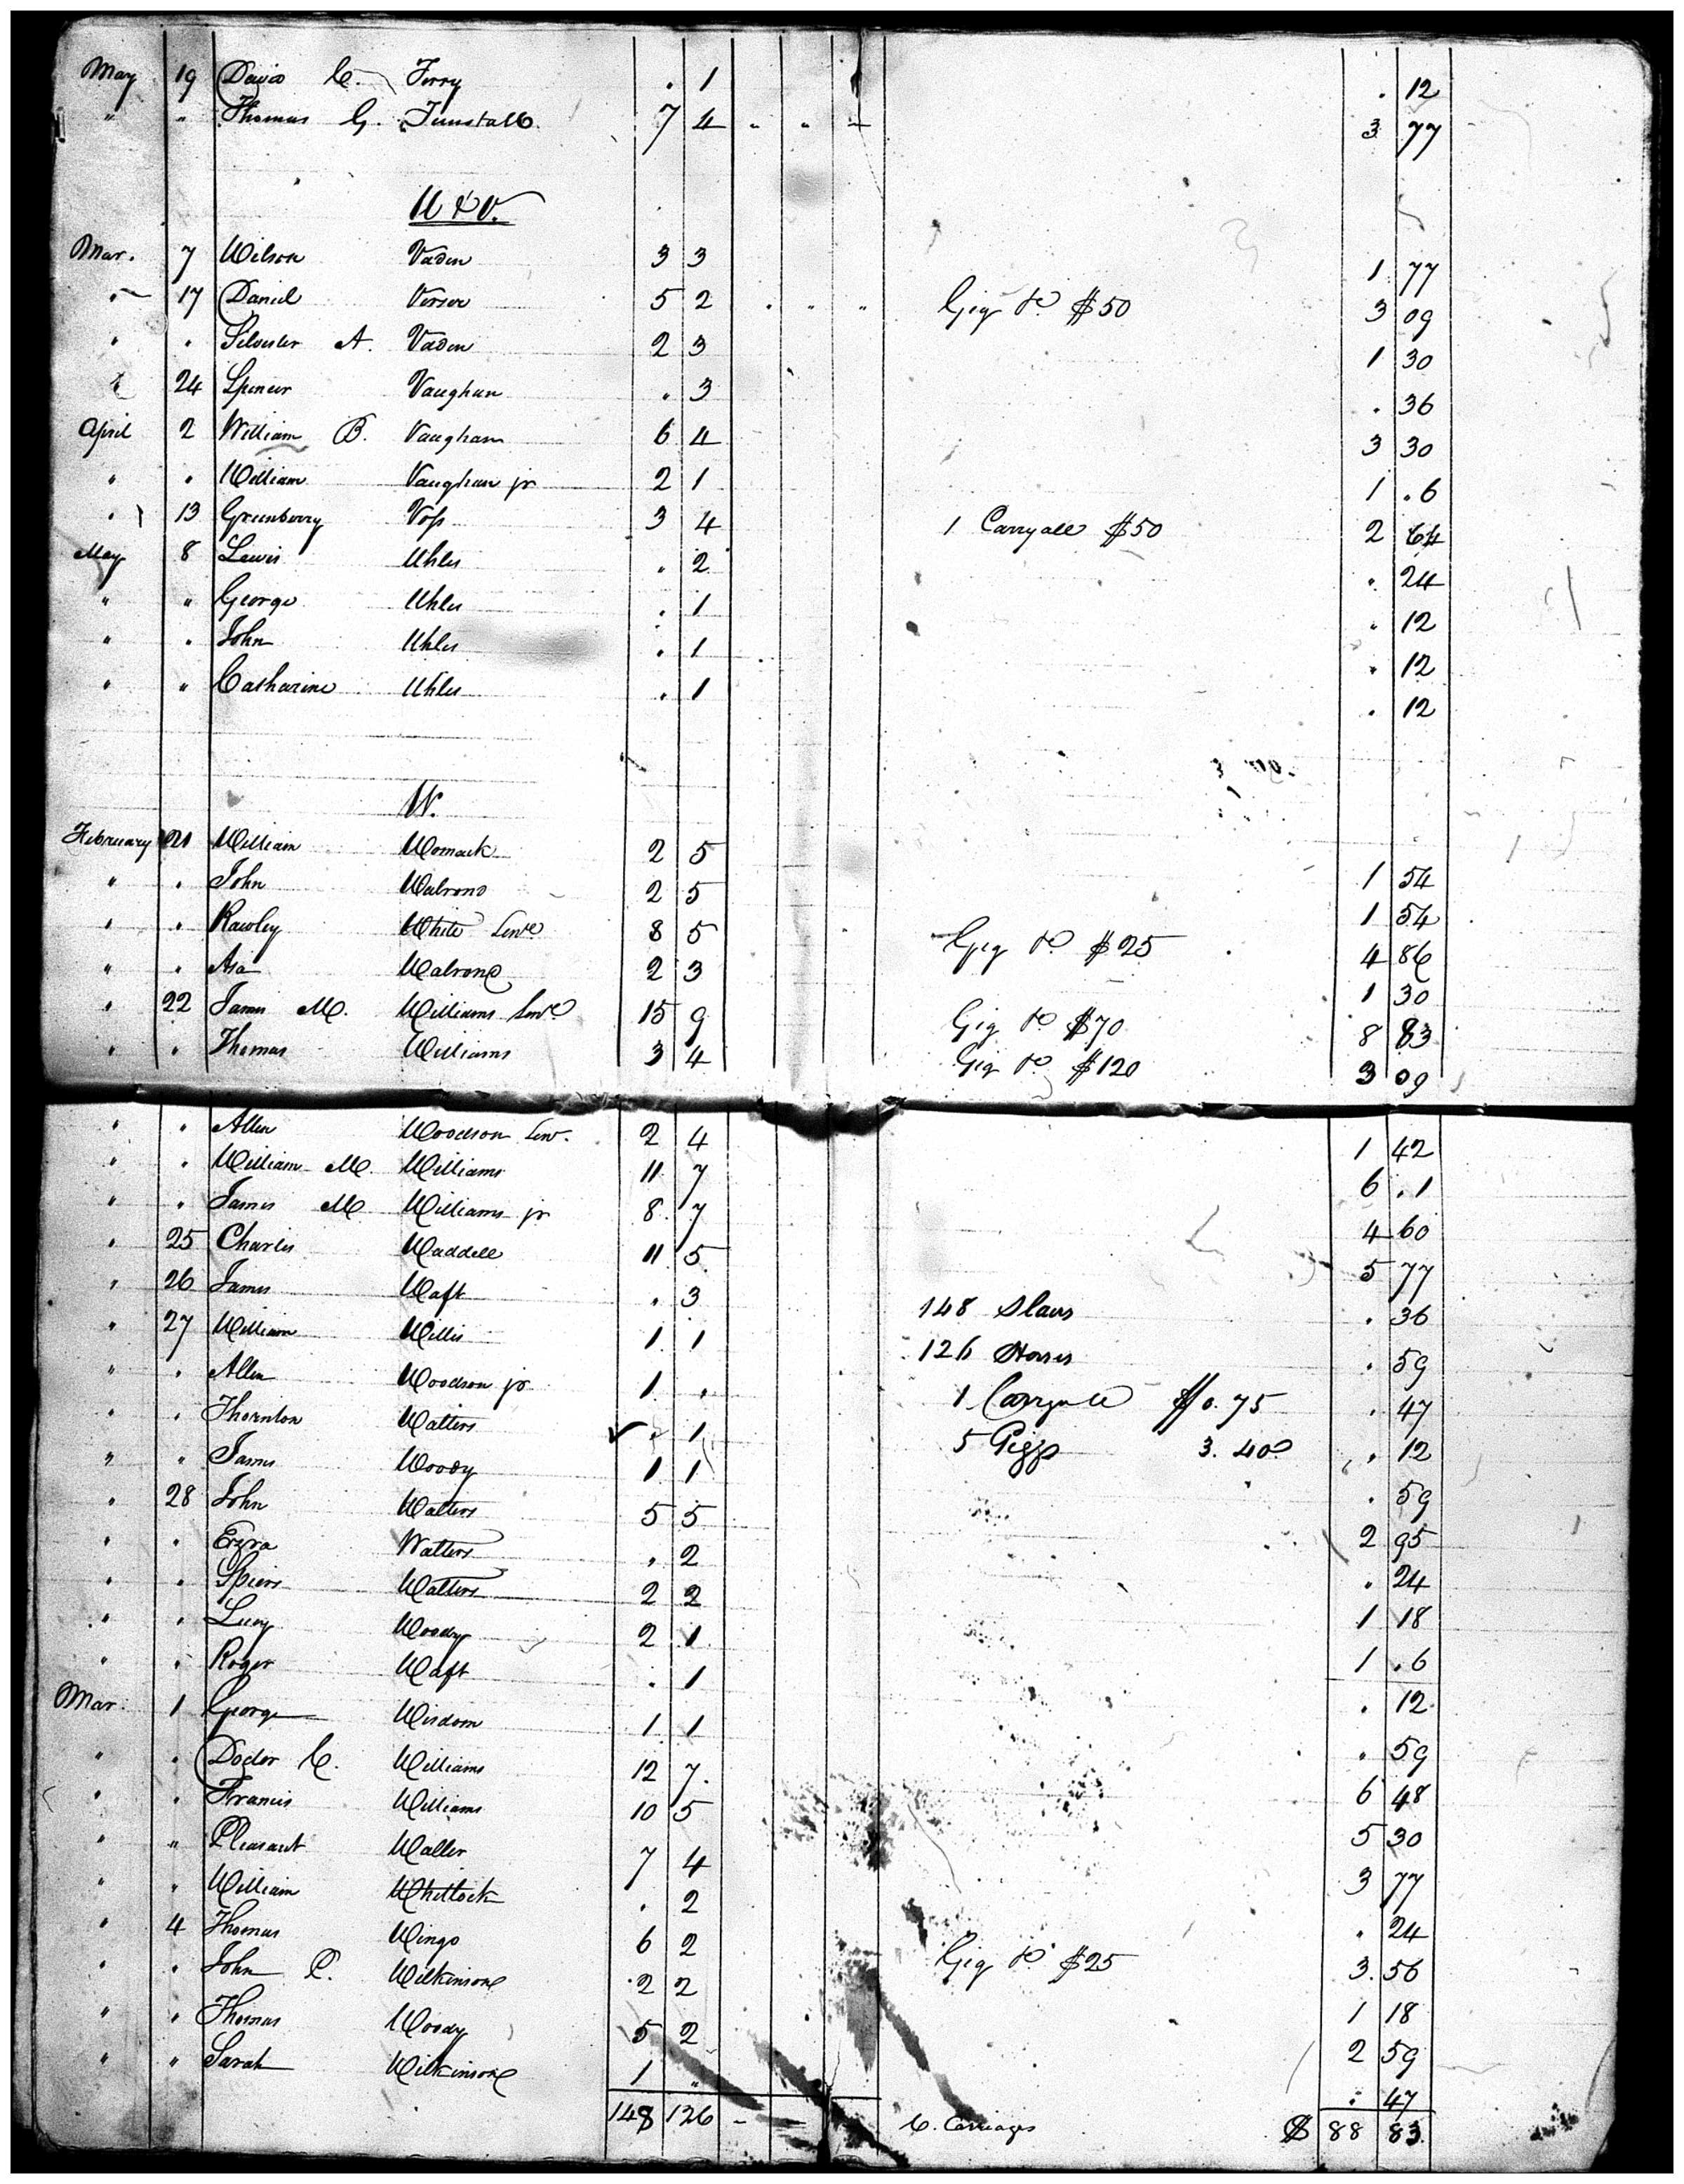 May 19 David C. Terry . 1 . 12
" " Thomas G. Tunstall 7 4 " " " 3 77
U & V.
Mar. 7 Wilson Vaden 3 3 1 77
" 17 Daniel Verser 5 2 " " " Gig &c. $50 3 09
" " Silvester A. Vaden 2 3 1 30
" 24 Spencer Vaughan . 3 . 36
April 2 William B. Vaughan 6 4 3 30
" " William Vaughan jr 2 1 1 .6
" 13 Greenberry Voss 3 4 1 Carryall $50 2 64
May 8 Lewis Uhles . 2 " 24
" " George Uhles . 1 " 12
" " John Uhles . 1 " 12
" " Catharine Uhles . 1 . 12
W.
February 21 William Womack 2 5 1 54
" " John Walrond 2 5 1 54
" " Rawley White Senr. 8 5 Gig &c. $25 4 86
" " Asa Walrond 2 3 1 30
" 22 James M. Williams Senr. 15 9 Gig &c. $70 8 83
" " Thomas Williams 3 4 Gig &c. $120 3 09
" " Allen Woodson Sen. 2 4 1 42
" " William M. Williams 11 7 6 .1
" " James M. Williams jr 8 7 4 60
" 25 Charles Waddell 11 5 5 77
" 26 James Waft . 3 148 Slaves . 36
" 27 William Willis 1 1 126 Horses . 59
" " Allen Woodson jr 1 . 1 Carryall $0.75 . 47
" " Thornton Walters . 1 5 Giggs 3.40 . 12
" " James Woody 1 1 . 59
" 28 John Walters 5 5 2 95
" " Ezra Walters . 2 " 24
" " Spiers Walters 2 2 1 18
" " Lucy Woody 2 1 1 .6
" " Roger Waft . 1 . 12
Mar. 1 George Wisdom 1 1 " 59
" " Doctor C. Williams 12 7 6 48
" " Francis Williams 10 5 5 30
" " Pleasant Waller 7 4 3 77
" " William Whitlock . 2 . 24
" 4 Thomas Wingo 6 2 Gig &c. $25 3.56
" " John P. Wilkinson 2 2 1 18
" " Thomas Woody 5 2 2 59
" " Sarah Wilkinson 1 " . 47
148 126 - - 6. Carriages $ 88 83